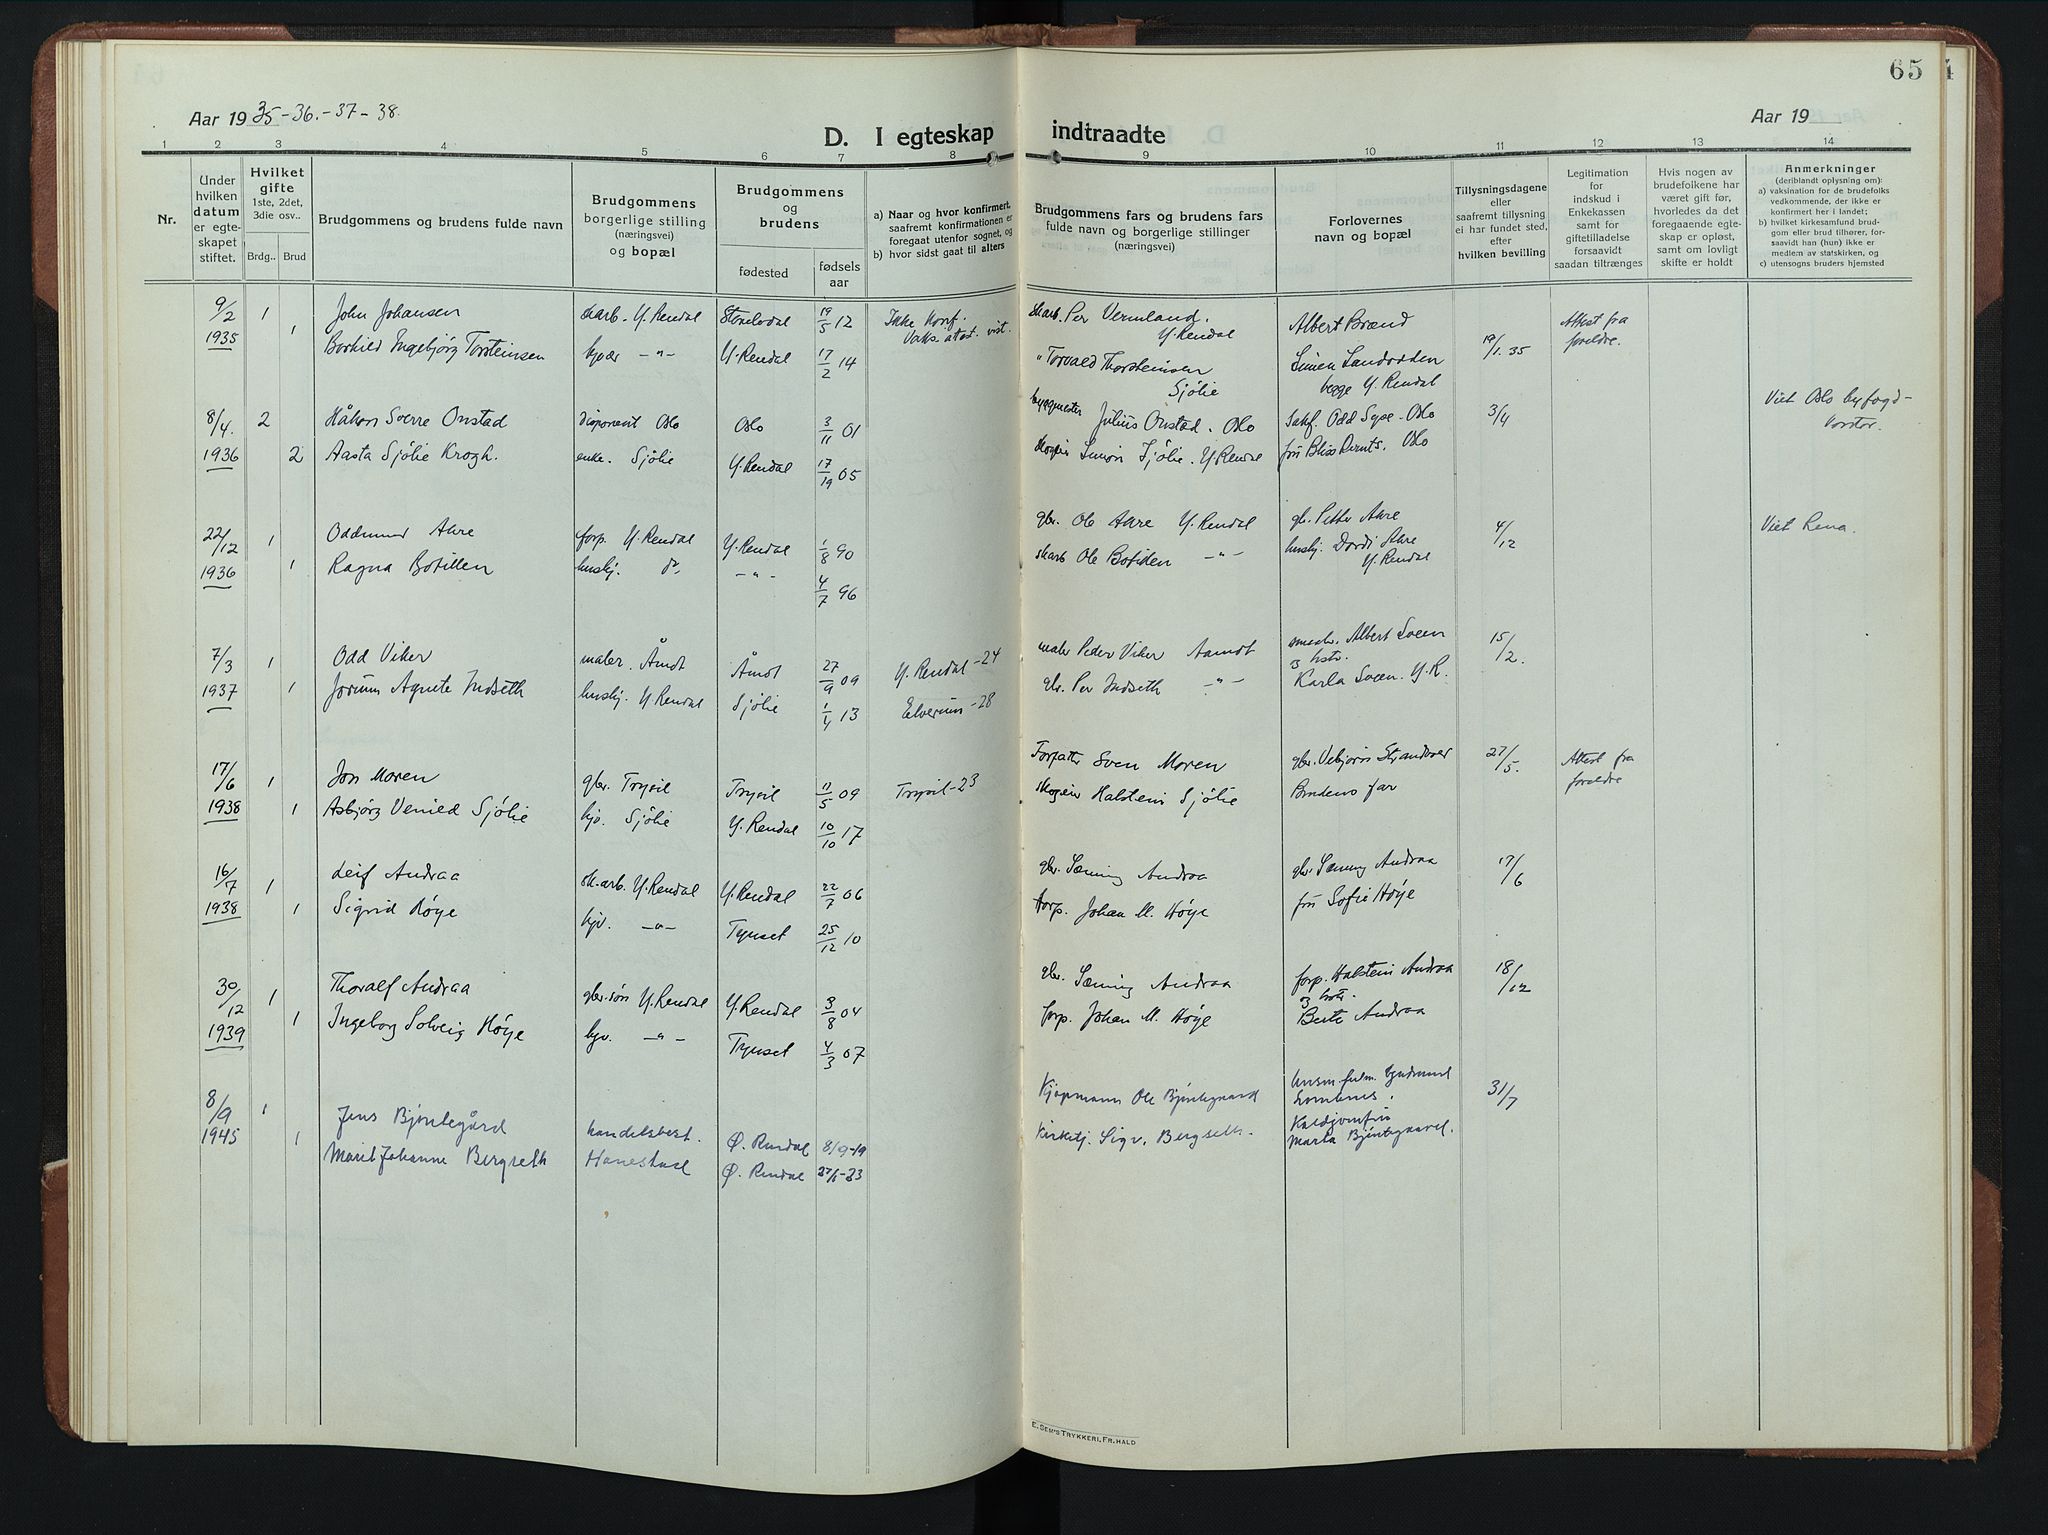 65
Aar 1935-36.-37-38.
Aar 19
D. I egteskap indtraadte
1 2 3 4 5 6 7 8 9 10 11 12 13 14
Nr.
Under hvilken datum er egteskapet stiftet.
Hvilket gifte 1ste, 2det, 3die osv..
Brdg.. Brud
Brudgommens og brudens fulde navn
Brudgommens borgerlige stilling (næringsvei) og bopæl
Brudgommens og brudens
fødested
fødsels aar
a) Naar og hvor konfirmert, saafremt konfirmationen er foregaat utenfor sognet, og
b) hvor sidst gaat til alters
Brudgommens fars og brudens fars fulde navn og borgerlige stillinger (næringsvei)
Forlovernes navn og bopæl
Tillysningsdagene eller saafremt tillysning ei har fundet sted, efter hvilken bevilling
Legitimation for indskud i Enkekassen samt for giftetilladelse forsaavidt saadan tiltrænges
Hvis nogen av brudefolkene har været gift før, hvorledes da det foregaaende egteskap er opløst, samt om lovligt skifte er holdt
Anmerkninger
(deriblandt oplysning om):
a) vaksination for de brudefolks vedkommende, der ikke er konfirmert her i landet;
b) hvilket kirkesamfund brudgom eller brud tilhører, forsaavidt han (hun) ikke er medlem av statskirken, og
c) utensogns bruders hjemsted
9/2 1 John Johansen skarb. Y. Rendal 19/5 12 Ikke konf. Vaks. attest vist. Skarb. Per Vermland. Y. Rendal Albert Brænd 19/1. 35 Attest fra foreldre.
1935 1 Borhild Ingebjørg Torsteinsen Y. Rendal 17/2 14 " Torvald Thorsteinsen Sjølie Simen Landodden begge Y. Rendal
8/4. 2 Håkon Sverre Onstad disponent Oslo Oslo 3/11 01 Julius Onstad. Oslo Odd Sype - Oslo 3/4 Viet Oslo byfogd-kontor.
1936 2 Aasta Sjølie Krogh. enke. Sjølie Y. Rendal 17/19 05 Simon Sjølie. Y. Rendal Oslo
22/12 1 Oddmund Akre forp. Y. Rendal Y. Rendal 1/8 90 gbr. Ole Akre Y. Rendal gbr. Petter Akre 4/12 Viet Rena.
1936 1 Ragna Botillen husbj. do - " - 4/7 96 skarb Ole Botilen - " - husbj. Dordi Akre Y. Rendal
7/3 1 Odd Viker maler. Åmot Åmot 27/9 09 Y. Rendal -24 maler Peder Viker Aamot Albert Sveen 15/2.
1937 1 Jorunn Agnete Indseth husbj. Y. Rendal Sjølie 1/4 13 Elverum -28 gbr. Per Indseth - " - og hstr. Karla Sveen. Y. R.
17/6 1 Jon Moren gbr. Trysil Trysil 11/5 09 Trysil -23 Forfatter Sven Moren gbr. Vebjørn Strandvær 27/5. Attest fra foreldre
1938 1 Asbjørg Venied Sjølie hjv. Sjølie Y. Rendal 10/10 17 skogeier Halstein Sjølie Brudens far
16/7 1 Leif Andraa sk.arb. Y. Rendal Y. Rendal 22/7 06 gbr. Sæming Andraa gbr. Sæming Andraa 17/6
1938 1 Sigrid Høye hjv. - " - Tynset 25/12 10 forp. Johan M. Høye fru Sofie Høye
30/12 1 Thoralf Andraa gbr.søn Y. Rendal Y. Rendal 3/8 04 gbr. Sæming Andraa forp. Halstein Andraa 18/12
1939 1 Ingeborg Solveig Høye hjv. - " - Tynset 4/3 07 forp. Johan M. Høye og hstr. Berte Andraa
8/9 1 Jens Bjøntegård handelsbest. Ø. Rendal 8/9-19 Kjøpmann Ole Bjøntegaard 31/7
1945 1 Marit Johanne Bergseth Hanestad Ø. Rendal 27/1-23 Kirketj. Sigv. Bergseth. Marta Bjøntegaard.
E. SEM'S TRYKKERI, FR.HALD